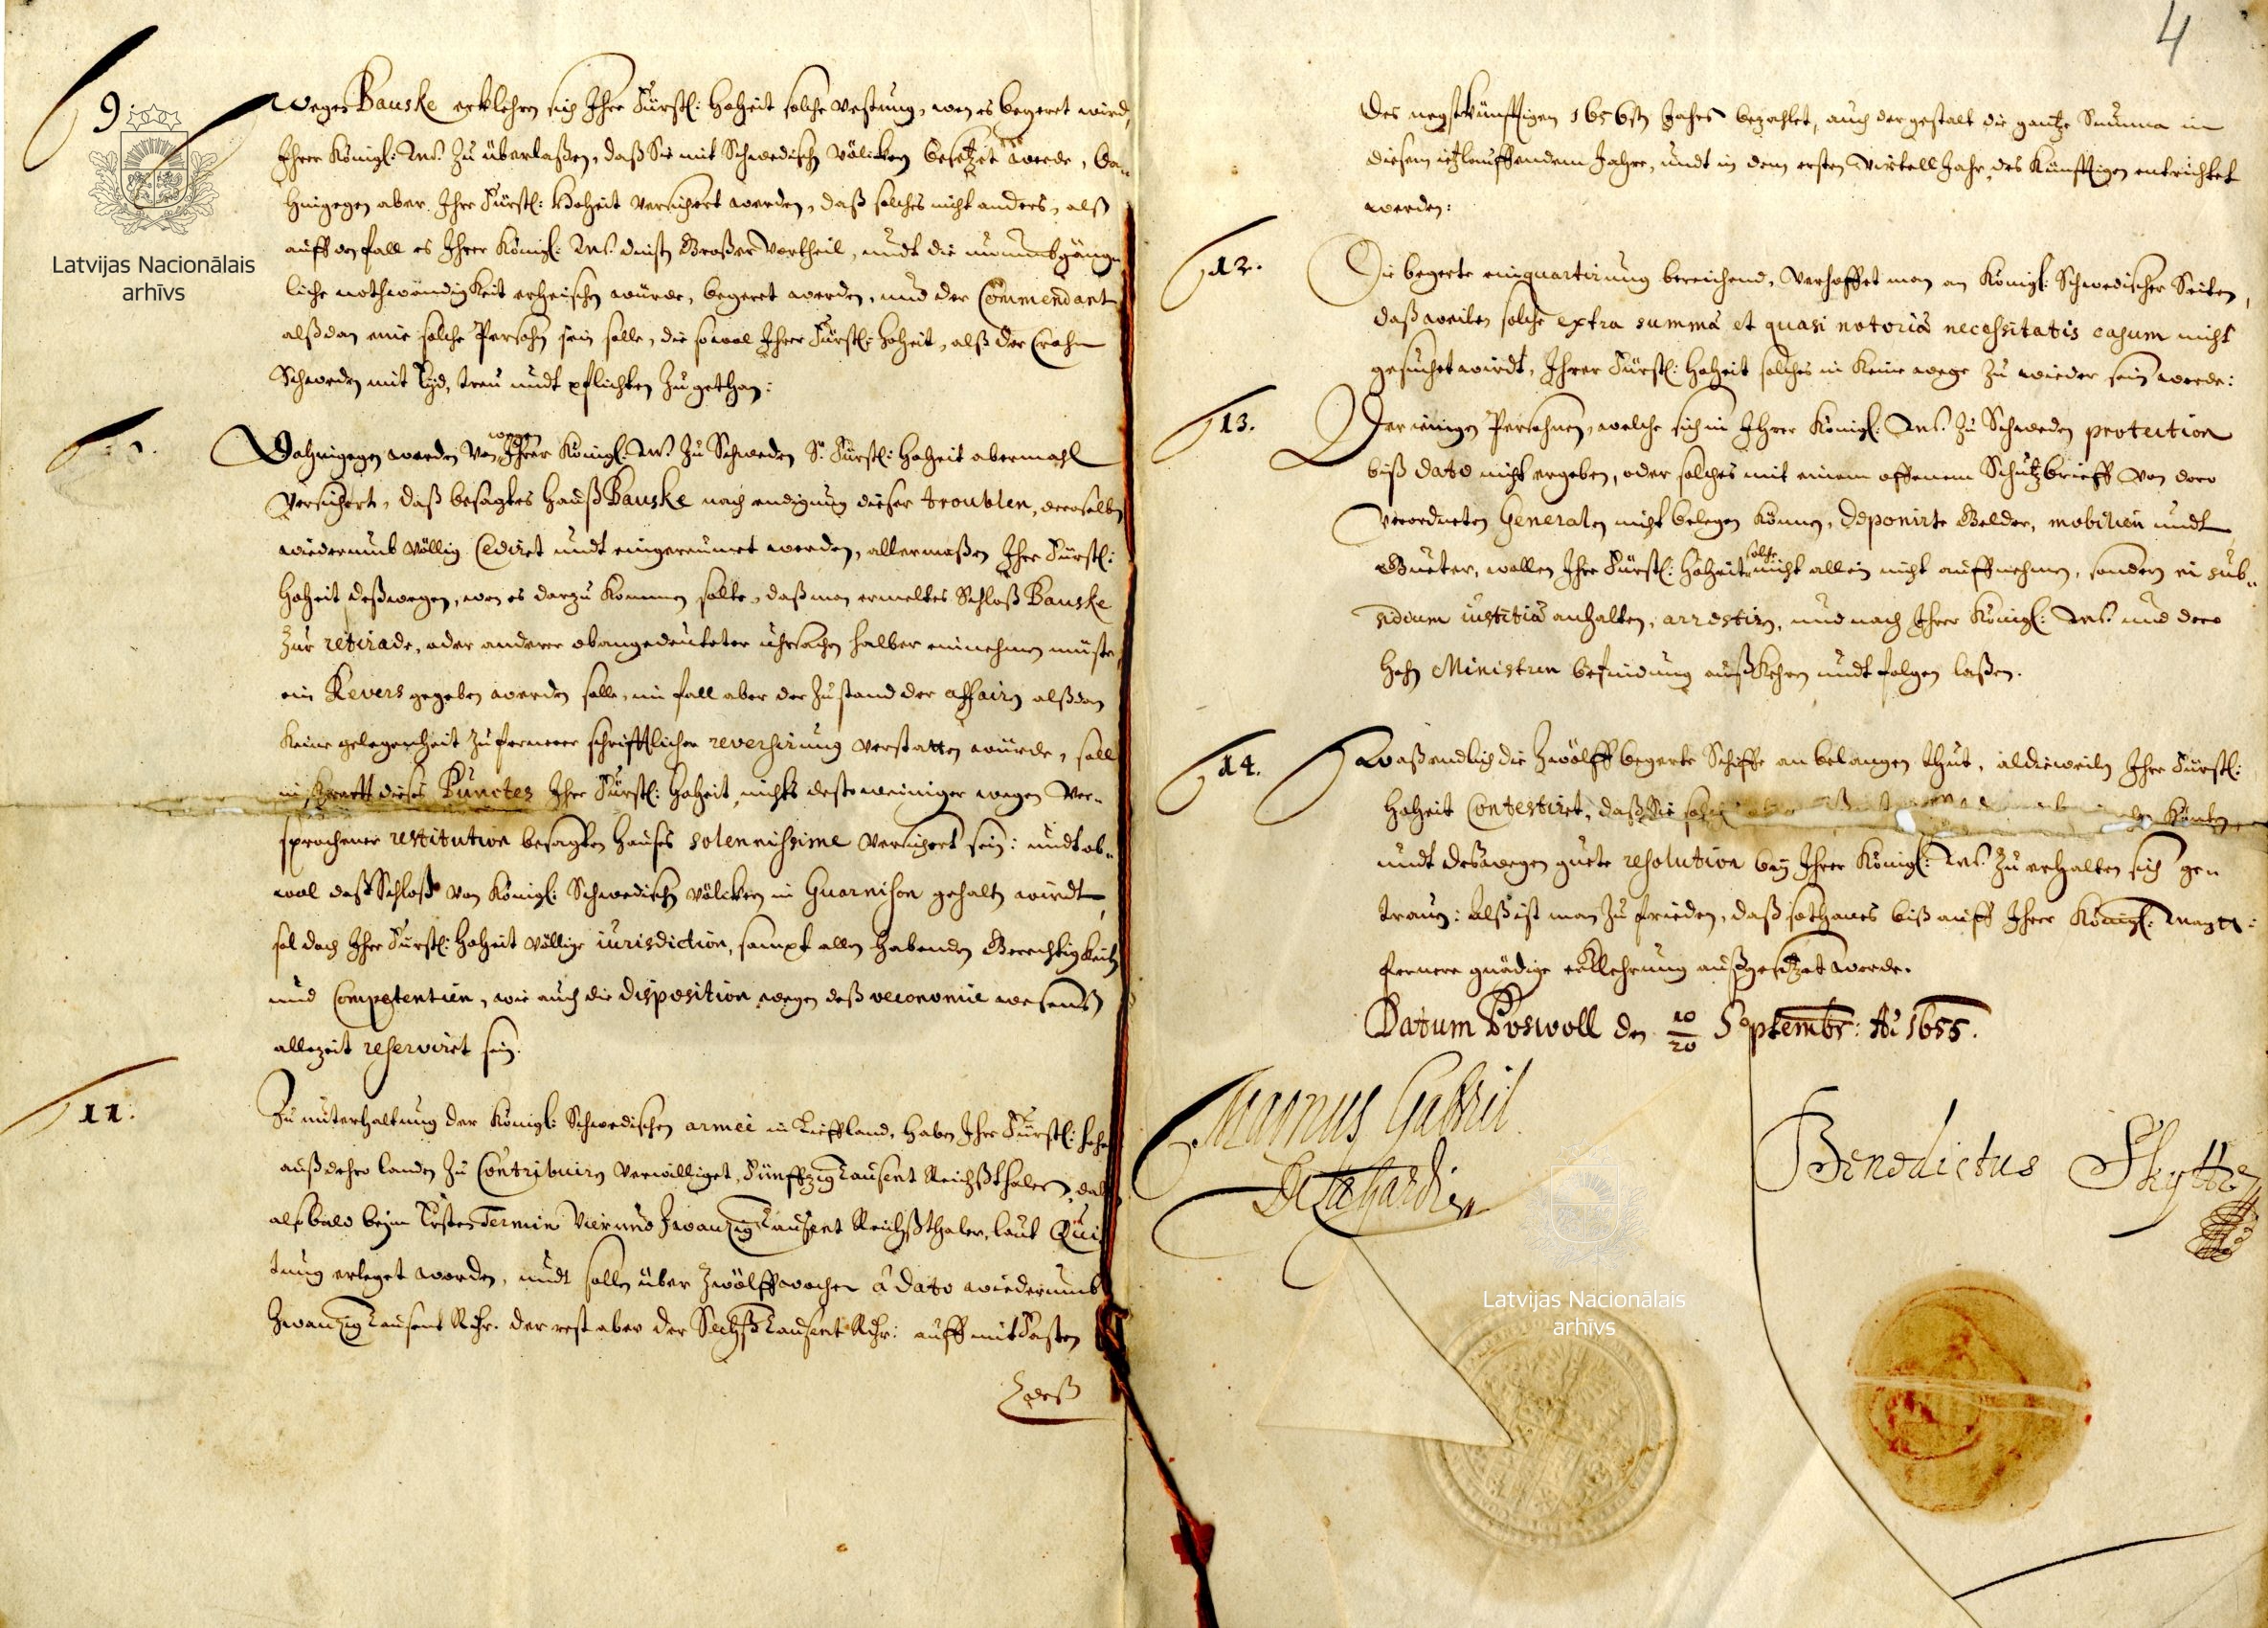 4
9.
Wegen Bauske erklehren sich Ihre Fürstl: Hoheit solche Vestung, wen es begeret wird,
Ihrer Königl: Ms. zu überlaßen, daß Sie mit Schwedischen Völckern besetzet werde, Da-
hingegen aber Ihre Fürstl: Hoheit versichert werden, daß solches nicht anders, alß
auff den fall es Ihrer Königl: Ms. dienste Großer Vortheil, undt die unumbgäng-
liche nothwendigkeit erheischen würde, begeret werden, und der Commendant
alßdan eine solche Persohn sein solle, die sowol Ihrer Fürstl: Hoheit, alß der Crohn
Schweden mit Eyd, treu undt pflichten zugethan:
Dahingegen werden von wegen Ihrer Königl: Ms. zu Schweden S. Fürstl: Hoheit abermahl
versichert, daß besagtes Hauß Bauske nach endigung dieser troublen, deroselben
wiederumb völlig Cediret undt eingereumet werden, allermaßen Ihre Fürstl:
Hoheit deßwegen, wen es darzu kommen solte, daß man ermeltes Schloß Bauske
zur retirade, oder anderer obangedeuteter uhrsachen halber einnehmen müste,
ein Revers gegeben werden solle, im fall aber der Zustand der affairen alßdan
keine gelegenheit zu fernerer schrifftlicher reversirung verstatten würde, soll
in krafft dieses Punctes Ihre Fürstl: Hoheit, nichts desto weiniger wegen ver-
sprochener restitution besagten Hauses solennissime versichert sein: undt ob-
wol daß Schloß von Königl: Schwedischen Völckern in Guarnison gehalten wirdt,
sol doch Ihre Fürstl: Hoheit völlige iurisdiction, sampt allen habenden Gerechtigkeiten
und Competentien, wie auch die disposition wegen deß oeconomie wesens
allezeit reserviret sein.
11.
Zu unterhaltung der Königl: Schwedischen armee in Lieffland, haben Ihre Fürstl:
auß dehro landen zu Contribuiren verwilliget, Fünffzig Tausent Reichsthaler,
alsobald beim Ersten Termin Vier und Zwanzig Tausent Reichsthaler, laut Qui
tung erleget worden, undt sollen über Zwölff wochen à dato wiederumb
Zwanzig Tausent Rthr. der rest aber der Sechß Tausent Rthr: auff mitfasten
deß
des negstkünfftigen 1656sten Jahres bezahlet, auch dergestalt die gantze Summa in
diesem ietzlauffendem Jahre, undt in dem ersten virtell Jahr, des künfftigen entrichtet
werden:
12.
Die begerte einquartirung bereichend, verhoffet man an Königl: Schwedischer Seiten,
daß weilen solche extra summæ et quasi notoriæ necessitatis casum nicht
gesuchet wirdt, Ihrer Fürstl: Hoheit solches in keine wege zu wieder sein werde:
13.
Derienigen Persohnen, welche sich in Ihrer Königl: Ms. zu Schweden protection
biß dato nicht ergeben, oder solches mit einem offenem Schutzbrieff von dero
verordneten Generalen nicht belegen können, deponirte Gelder, mobilien undt
Gueter, wollen Ihre Fürstl: Hoheit solche nicht allein nicht auffnehmen, sondern in sub-
sidium iustitiæ anhalten, arrestiren, und nach Ihrer Königl: Ms. und dero
Hohen Ministren befindung außkehren undt folgen laßen.
14.
Waß endlich die Zwölff begerte Schiffe anbelangen thut, aldieweilen Ihre Fürstl:
Hoheit Contestiret, daß Sie
undt deßwegen guete resolution bey Ihrer Königl: Ms. zu erhalten sich ge-
trauen: Alß ist man zu frieden, daß sothanes biß auff Ihrer Königl: Maytt:
fernere gnädige erklehrung außgesetzet werde.
Datum Poswoll den 10/20 Septembr: Ao 1655.
Magnus Gabriel
De la Gardie
Benedictus Skytte
Latvijas Nacionālais
arhīvs
Latvijas Nacionālais
arhīvs